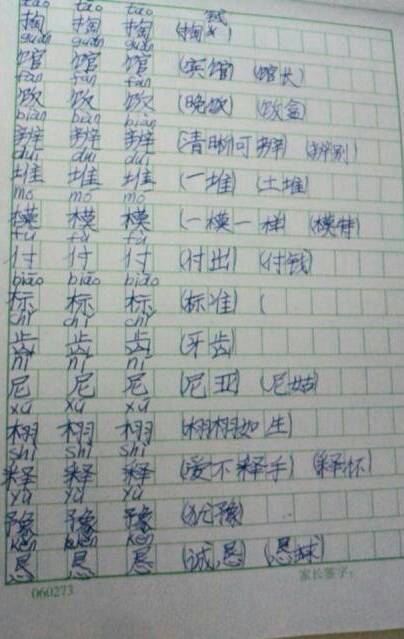 tāo tāo tāo
掏 掏 掏 (掏
guǎn guǎn guǎn
馆 馆 馆 (宾馆) (馆长)
fàn fàn fàn
饭 饭 饭 (晚饭) (饭盒)
biàn biàn biàn
辨 辨 辨 (清晰可辨) (辨别)
duī duī duī
堆 堆 堆 (一堆) (土堆)
mó mó mó
模 模 模 (一模一样) (模特)
fù fù fù
付 付 付 (付出) (付钱)
biāo biāo biāo
标 标 标 (标准) (
chǐ chǐ chǐ
齿 齿 齿 (牙齿)
ní ní ní
尼 尼 尼 (尼亚) (尼姑)
xǔ xǔ xǔ
栩 栩 栩 (栩栩如生)
shì shì shì
释 释 释 (爱不释手) (释怀)
yù yù yù
豫 豫 豫 (犹豫)
kěn kěn kěn
恳 恳 恳 (诚恳) (恳球)
060273 家长签字：